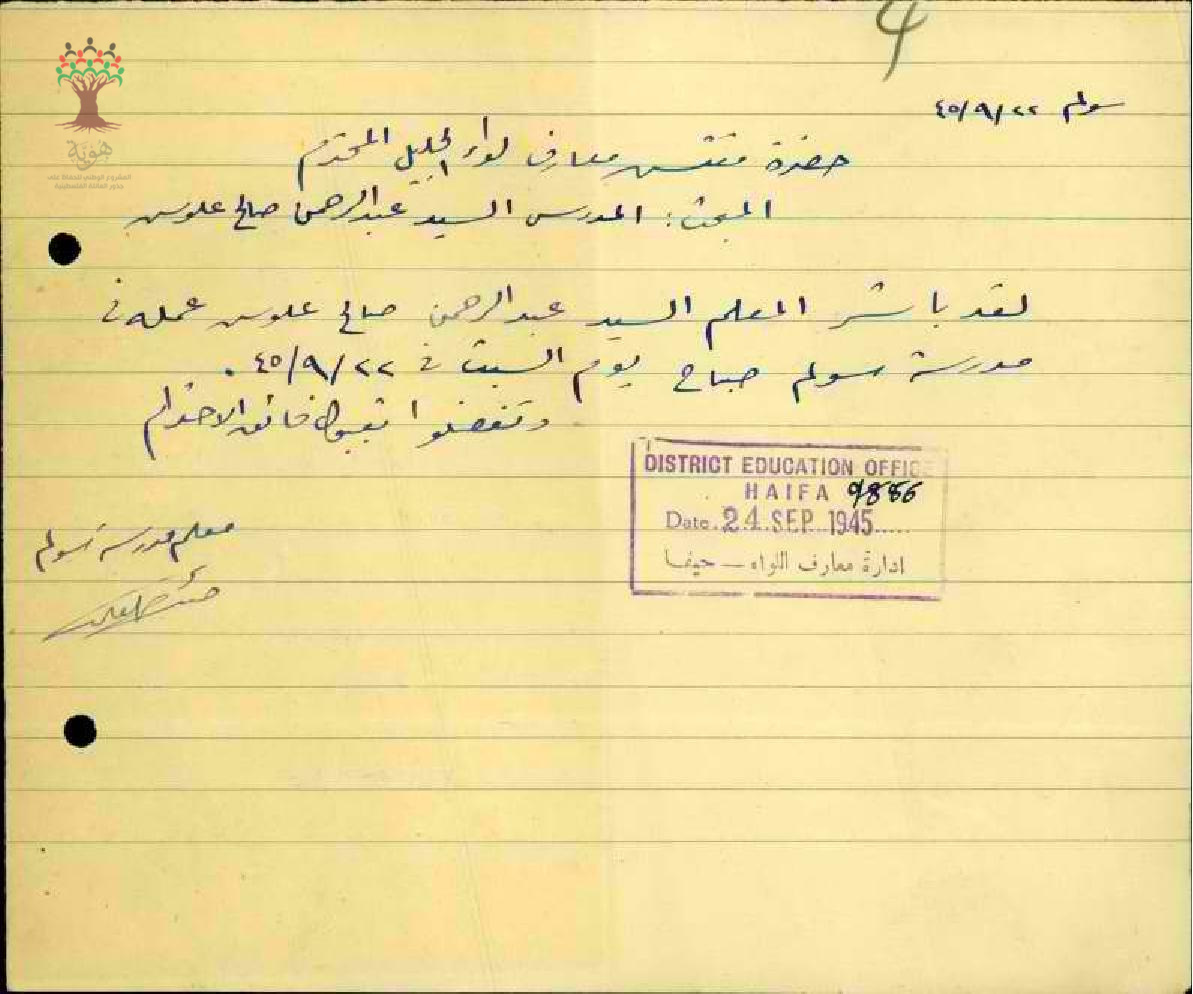 4
سولم ٤٥/٩/٢٢
حضرة مفتش معارف لواء الجليل المحترم
المبحث: المدرس السيد عبد الرحمن صالح علوس
لقد باشر المعلم السيد عبد الرحمن صالح علوس عمله في
مدرسة سولم صباح يوم السبت في ٤٥/٩/٢٢.
وتفضلوا بقبول فائق الاحترام
معلم مدرسة سولم
DISTRICT EDUCATION OFFICE
HAIFA 9886
Date. 24. SEP 1945.....
ادارة معارف اللواء — حيفا
هوية
المشروع الوطني للحفاظ على
جذور العائلة الفلسطينية